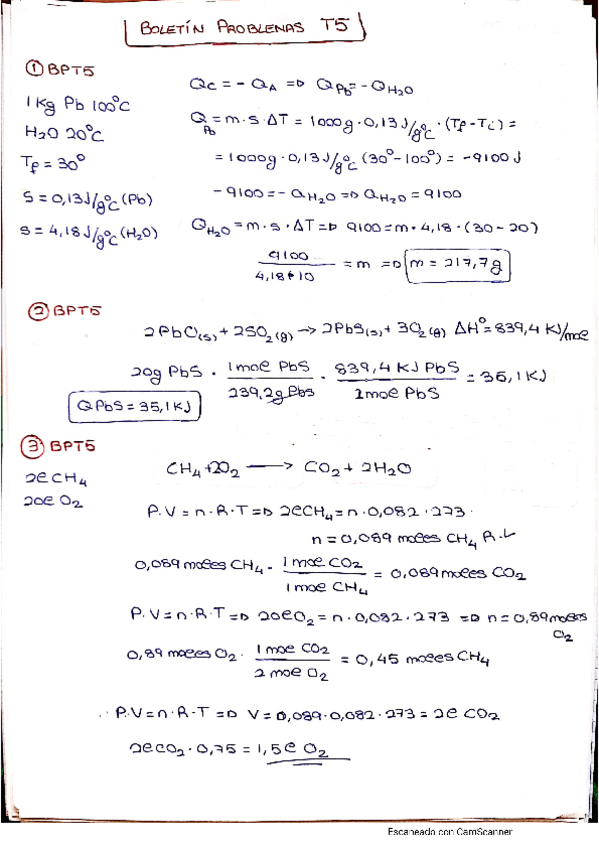 BOLETÍN PROBLEMAS T5
① BPT5
1 Kg Pb 100°C
H₂O 20°C
Tf = 30°
S = 0,13 J/g°C (Pb)
S = 4,18 J/g°C (H₂O)
Qc = - QA => QPb = - QH₂O
Q Pb = m · s · ΔT = 1000g · 0,13 J/g°C · (Tf - Ti) =
= 1000g · 0,13 J/g°C (30° - 100°) = -9100 J
-9100 = - QH₂O => QH₂O = 9100
QH₂O = m · s · ΔT => 9100 = m · 4,18 · (30 - 20)
9100 / 4,18 · 10 = m => m = 217,7 g
② BPT5
2PbO(s) + 2SO₂(g) → 2PbS(s) + 3O₂(g) ΔH° = 839,4 KJ/mol
20g PbS · 1mol PbS / 239,2g PbS · 839,4 KJ PbS / 2mol PbS = 35,1 KJ
QPbS = 35,1 KJ
③ BPT5
2l CH₄
20l O₂
CH₄ + 2O₂ → CO₂ + 2H₂O
P.V = n · R · T => 2l CH₄ = n · 0,082 · 273 ·
n = 0,089 moles CH₄ R.L
0,089 moles CH₄ · 1 mol CO₂ / 1 mol CH₄ = 0,089 moles CO₂
P.V = n · R · T => 20l O₂ = n · 0,082 · 273 => n = 0,89 moles O₂
0,89 moles O₂ · 1 mol CO₂ / 2 mol O₂ = 0,45 moles CH₄
P.V = n · R · T => V = 0,089 · 0,082 · 273 = 2l CO₂
2l CO₂ · 0,75 = 1,5l O₂
Escaneado con CamScanner